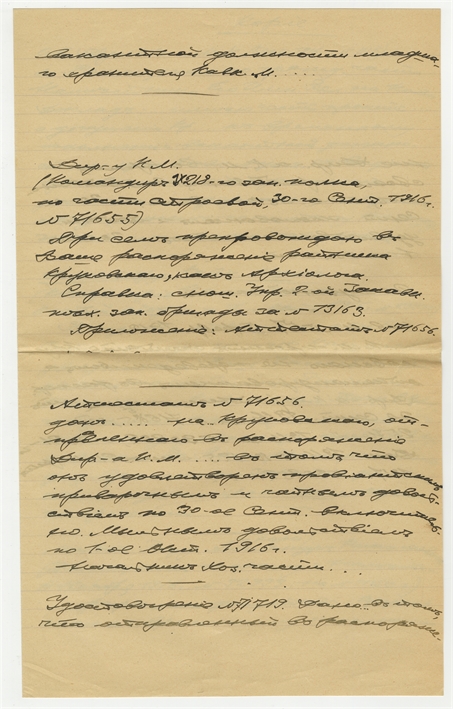 вакантной должности младша-
го хранителя Кавк. М. . . . .
Дир-у К. М.
(Командиръ 218-го зап. полка,
по части строевой, 30-го Сент. 1916 г.
№ 71655)
При семъ препровождаю въ
Ваше распоряженіе ратника
Круковскаго, какъ Археолога.
Справка: снош. Упр. 2-ой Закавк.
зап. бригады за № 13163.
Приложеніе: Аттестатъ № 71656.
Аттестатъ № 71656.
данъ . . . . . на Круковскаго, от-
правленнаго въ распоряженіе
Дир-а К. М. . . . . въ томъ что
онъ удовлетворенъ провіантскимъ
приварочнымъ и чайнымъ доволь-
ствіемъ по 30-ое Сент. включитель-
но. Мыльнымъ довольствіемъ
по 1-ое Окт. 1916 г.
Начальникъ Хоз. части . . .
Удостовереніе № 71719. Дано въ томъ,
что отправленный въ распоряж.